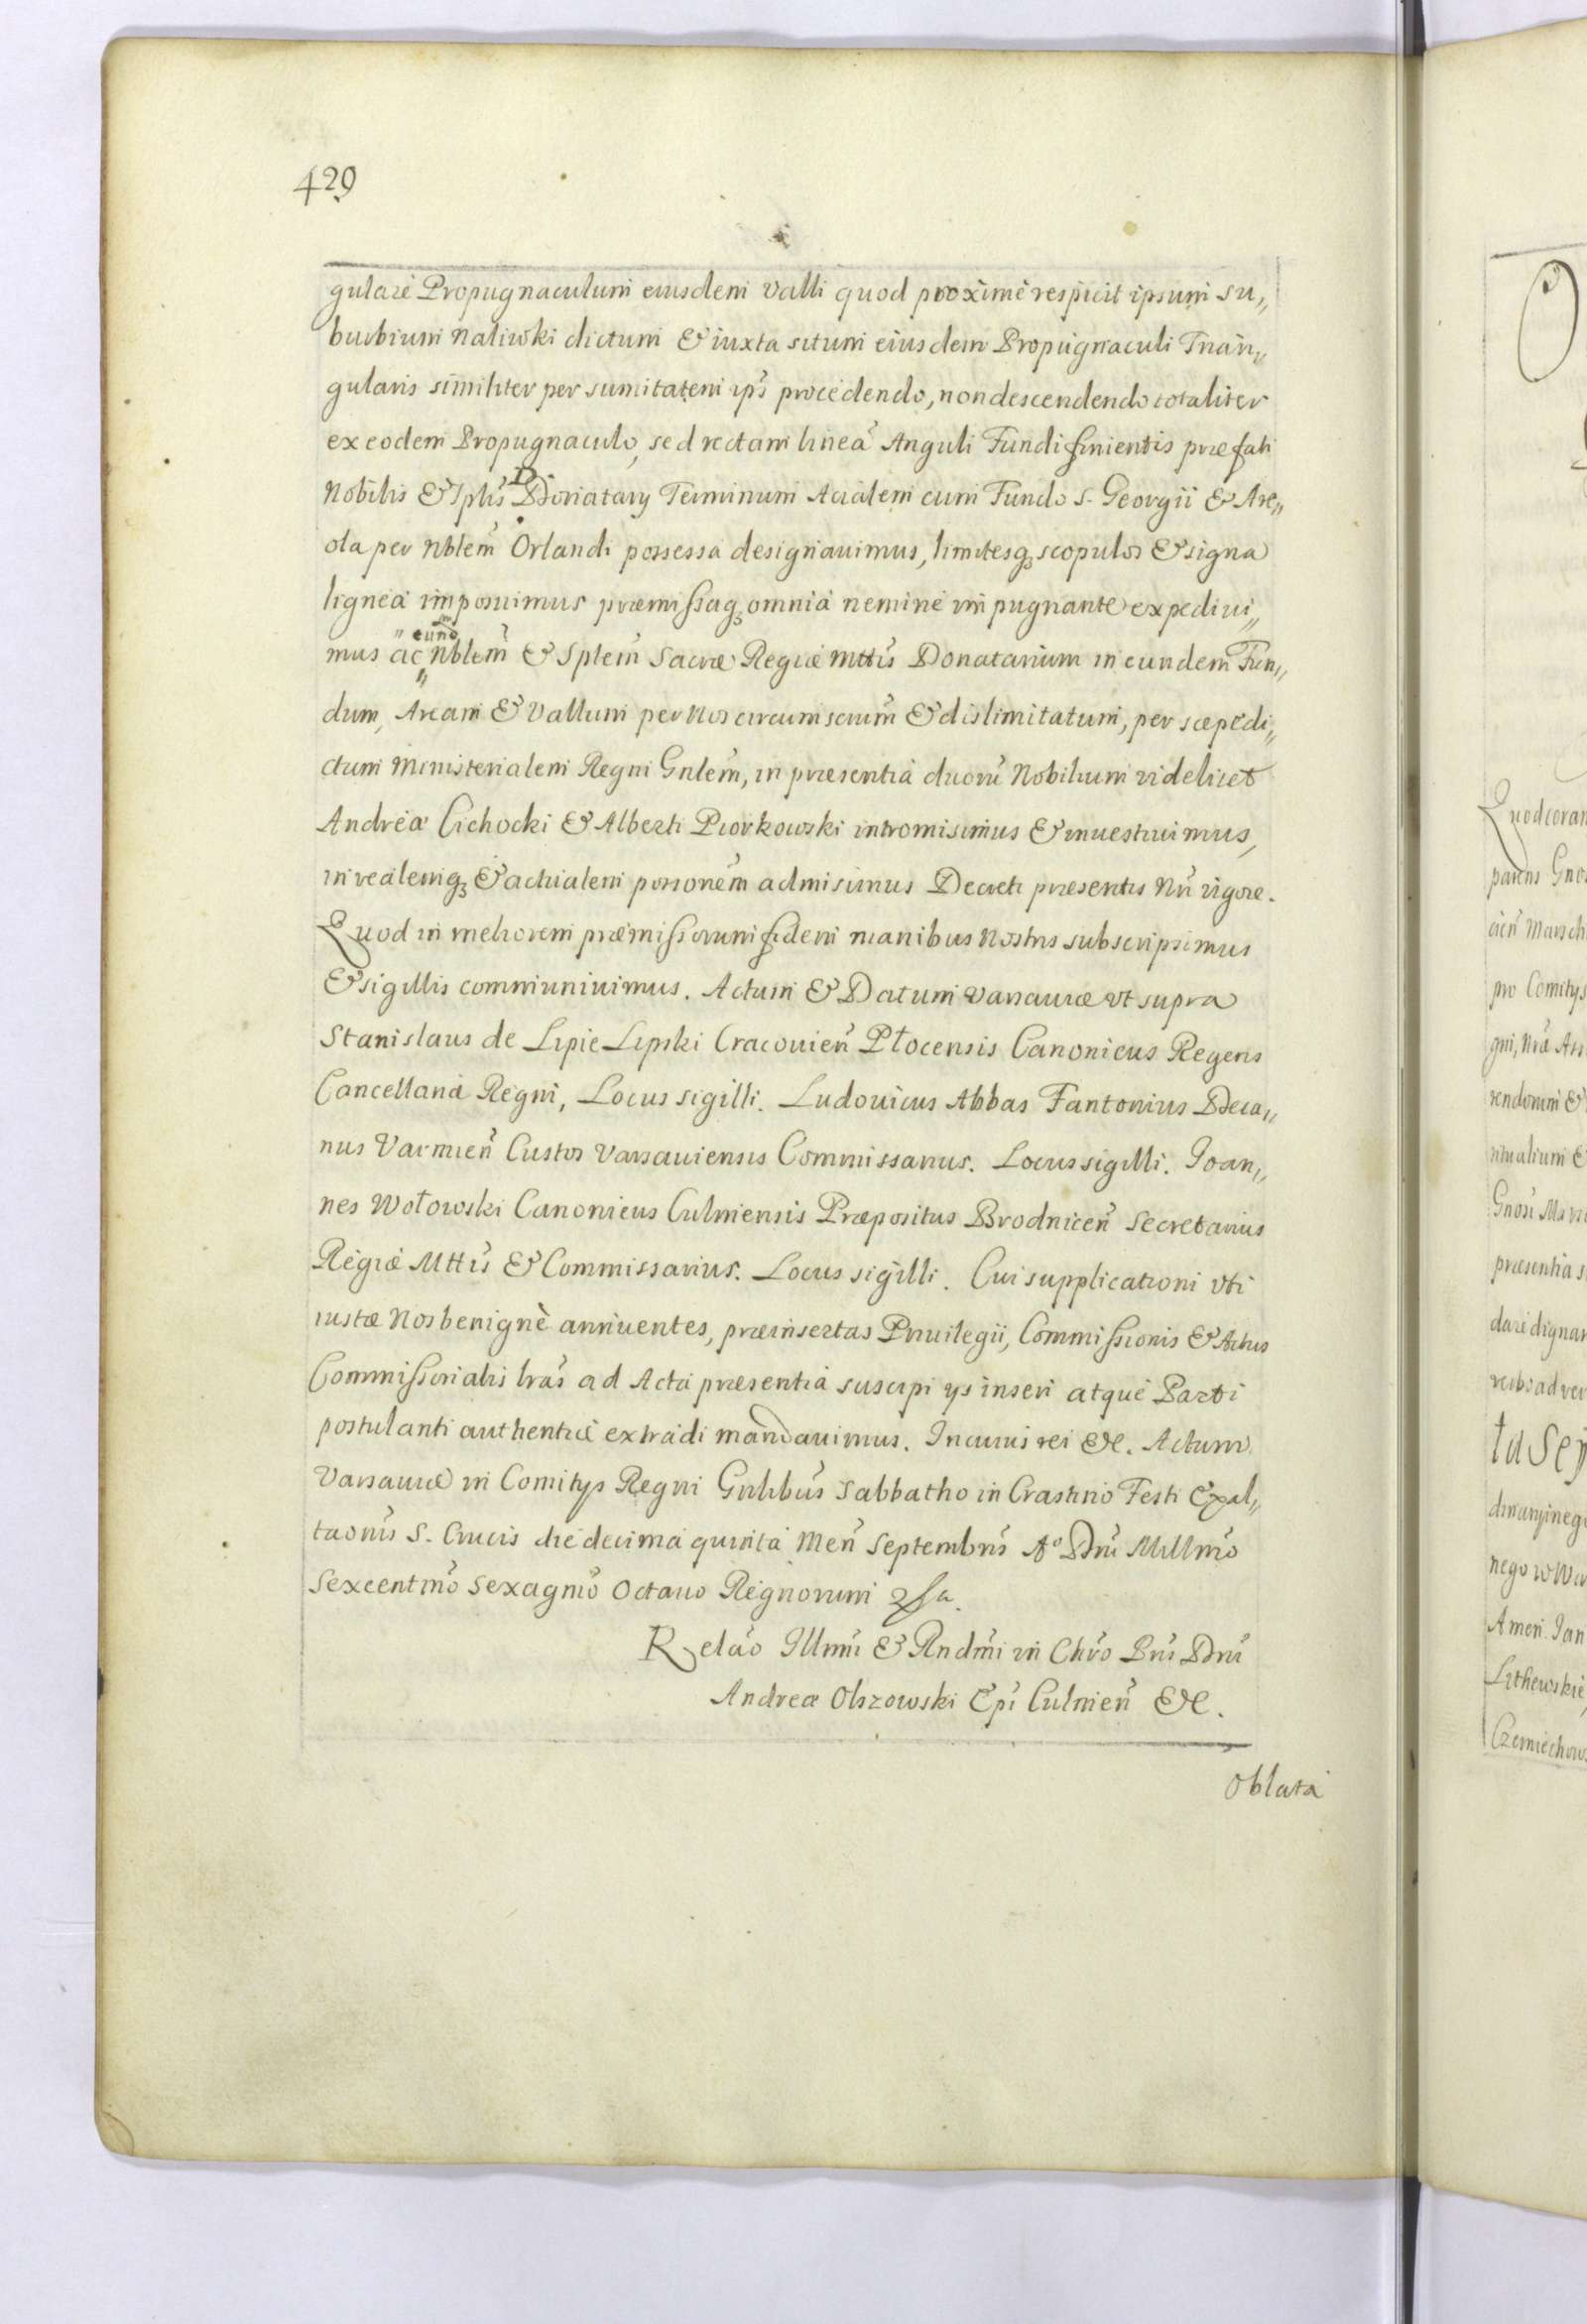 429
gulare Propugnaculum eiusdem Valli quod proximè respicit ipsum su„
burbium Naliwki dictum & iuxta situm eiusdem Propugnaculi Trian„
gularis similiter per sumitatem ips̃ procedendo, non descendendo totaliter
ex eodem Propugnaculo, sed rectam lineã Anguli Fundi finientis præfati
Nobilis & Splis̃ D Donatarij Terminum Acialem cum Fundo S. Georgii & Are„
ola per Nblem̃ Orlandi possessa designauimus, limitesq́; scopulos & signa
lignea imposuimus præmissaq́; omnia nemine impugnante expediui„
mus ac eund̃ Nblem̃ & Splem̃ Sacræ Regiæ Mttis̃ Donatarium in eundem Fun„
dum, Aream & Vallum per Nos circumscrium̃ & dislimitatum, per sæpedi„
ctum Ministerialem Regni Gnlem̃, in præsentia duorũ Nobilium videlicet
Andreæ Cichocki & Alberti Piorkowski intromisimus & inuestiuimus,
in realemq́; & actualem possionem̃ admisimus Decreti præsentis Nri̇̃ vigore.
Quod in meliorem præmissorum fidem manibus Nostris subscripsimus
& sigillis communiuimus. Actum & Datum Varsauiæ vt supra
Stanislaus de Lipie Lipski Cracouien̄ Płocensis Canonicus Regens
Cancellariæ Regni, Locus sigilli. Ludouicus Abbas Fantonius Deca„
nus Varmien̄ Custos Varsauiensis Commissarius. Locus sigilli. Ioan„
nes Wołowski Canonicus Culmensis Præpositus Brodnicen̄ Secretarius
Regiæ Mttis̃ & Commissarius. Locus sigilli. Cui supplicationi vti
iustæ Nos benignè annuentes, præinsertas Priuilegii, Commissionis & Actus
Commissorialis lras̃ ad Acta præsentia suscipi ijs inseri atque Parti
postulanti authenticè extradi mandauimus. In cuius rei &c. Actum
Varsauiæ in Comitijs Regni Gnlibus̃ Sabbatho in Crastino Festi Exal„
taonis̃ S. Crucis die decima quinta Men̄ Septembris̃ Aº Dni̇̃ Millmȯ̃
Sexcentmȯ̃ Sexagmȯ̃ Octauo Regnorum
Relão Illmi̇̃ & Rndmi̇̃ in Chrȯ̃ Pris̃ Dni̇̃
Andreæ Olszowski Epi̇̃ Culmen̄ &c.
Oblata